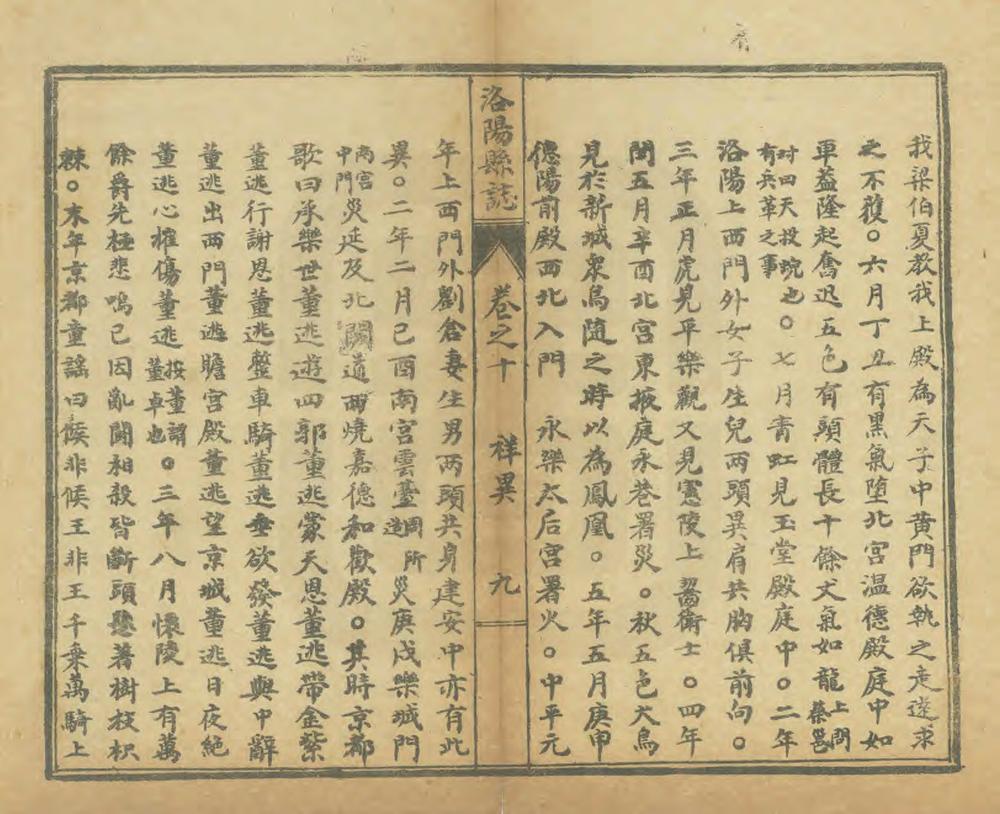 我梁伯夏教我上殿為天子中黄門欲執之走遂求
之不獲○六月丁丑有黑氣堕北宫温德殿庭中如
車蓋隆起奮迅五色有頭體長十餘丈氣如龍上問蔡邕
對曰天投蜺也有兵革之事○七月青虹見玉堂殿庭中○二年
洛陽上西門外女子生兒兩頭異肩共胸俱前向○
三年正月虎見平樂觀又見憲陵上齧衛士○四年
閏五月辛酉北宫東掖庭永巷署災○秋五色大鳥
見於新城衆鳥随之時以為鳳凰○五年五月庚申
德陽前殿西北入門 永樂太后宫署火○中平元
洛陽縣誌 卷之十 祥異 九
年上西門外劉倉妻生男两頭共身建安中亦有此
異○二年二月己酉南宫雲臺 災庚戌樂城門
南宫中門災延及北闕道西燒嘉德和歡殿○其時京都
歌曰承樂世董逃遊四郭董逃蒙天恩董逃帶金紫
董逃行謝恩董逃整車騎董逃垂欲發董逃與中辭
董逃出西門董逃瞻宫殿董逃望京城董逃日夜絶
董逃心摧傷董逃按董謂董卓也○三年八月懷陵上有萬
餘爵先極悲鳴已因亂鬪相殺皆斷頭懸著樹枝枳
棘○末年京都童謡曰候非候王非王千乗萬騎上